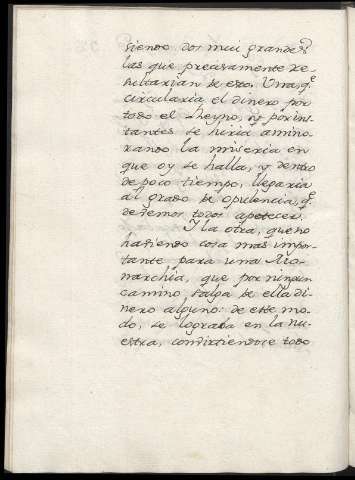 siendo dos mui grandes
las que precisamente re-
sultarian de esto. Una, qe
circularia el dinero por
todo el Reyno, y por ins-
tantes se hiria amino-
rando la miseria en
que oy se halla, y dentro
de poco tiempo, llegaria
al grado de opulencia, qe
devemos todos apetecer.
Y la otra, que no
haviendo cosa mas impor-
tante para una Mo-
narchia, que por ningun
camino, salga de ella di-
nero alguno: de este mo-
do, se lograba en la nu-
estra, convirtiendose todo